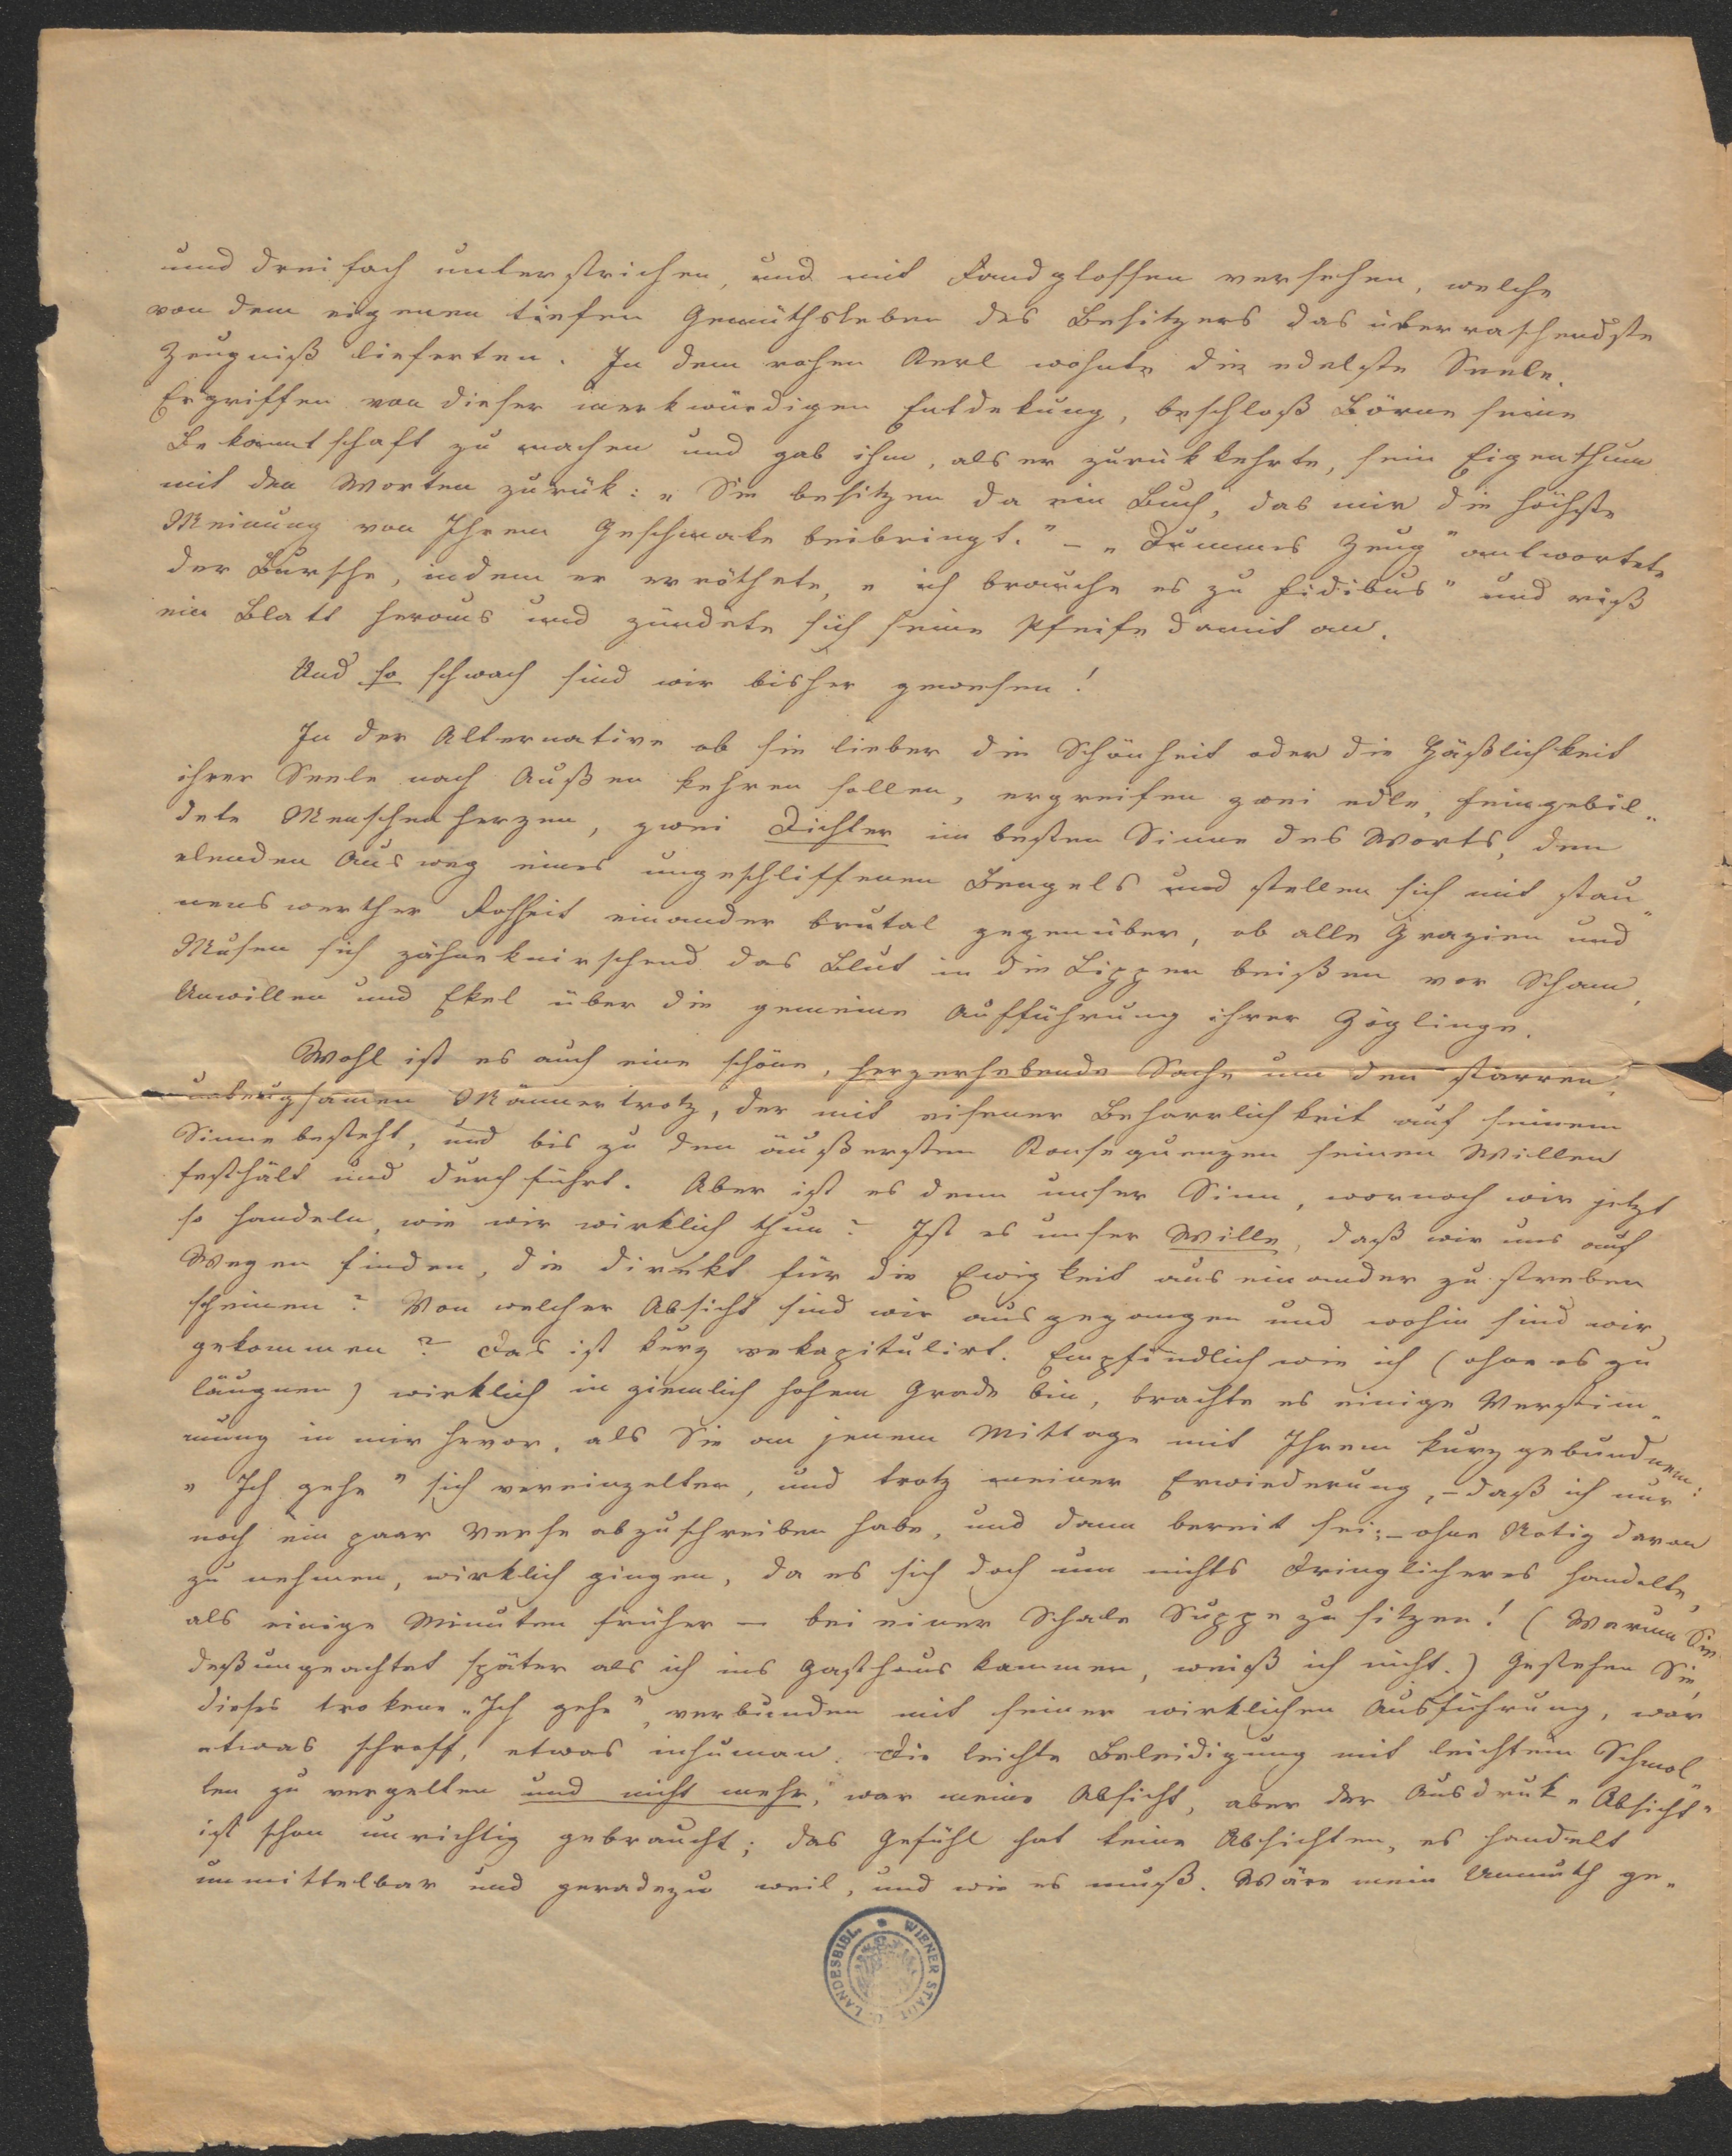 und dreifach unterstrichen, und mit Randglossen versehen, welche
von dem eigenen tiefen Gemüthsleben des Besitzers das überraschendste
Zeugniß lieferten. In dem rohen Kerl wohnte die edelste Seele.
Ergriffen von dieser merkwürdigen Entdekung, beschloß Börne seine
Bekanntschaft zu machen und gab ihm, als er zurükkehrte, sein Eigenthum
mit den Worten zurük: „Sie besitzen da ein Buch, das mir die höchste
Meinung von Ihrem Geschmake beibringt." – „Dummes Zeug" antwortete
der Bursche, indem er erröthete, „ich brauche es zu Fidibus" und riß
ein Blatt heraus und zündete sich seine Pfeife damit an.
Und so schwach sind wir bisher gewesen!
In der Alternative ob sie lieber die Schönheit oder die Häßlichkeit
ihrer Seele nach Außen kehren sollen, ergreifen zwei edle, feingebil„
dete Menschenherzen, zwei Dichter im besten Sinne des Worts, den
elenden Ausweg eines ungeschliffenen Bengels und stellen sich mit stau„
nenswerther Rohheit einander brutal gegenüber, ob alle Grazien und
Musen sich zähneknirschend das Blut in die Lippen beißen vor Scham,
Unwillen und Ekel über die gemeine Aufführung ihrer Zöglinge.
Wohl ist es auch eine schöne, herzerhebende Sache um den starren,
unbeugsamen Männertrotz, der mit eiserner Beharrlichkeit auf seinem
Sinne besteht, und bis zu den äußersten Konsequenzen seinen Willen
festhält und durchführt. Aber ist es denn unser Sinn, wornach wir jetzt
so handeln, wie wir wirklich thun? Ist es unser Wille, daß wir uns auf
Wegen finden, die direkt für die Ewigkeit auseinander zu streben
scheinen? Von welcher Absicht sind wir ausgegangen und wohin sind wir
gekommen? Das ist kurz rekapitulirt. Empfindlich wie ich (ohne es zu
läugnen) wirklich in ziemlich hohem Grade bin, brachte es einige Verstim„
mung in mir hervor, als Sie an jenem Mittage mit Ihrem kurz gebundnem:
„Ich gehe" sich vereinzelten, und trotz meiner Erwiederung, – daß ich nur
noch ein paar Verse abzuschreiben habe, und dann bereit sei; – ohne Notiz davon
zu nehmen, wirklich gingen, da es sich doch um nichts Dringlicheres handelte,
als einige Minuten früher — bei einer Schale Suppe zu sitzen! (Warum Sie
deßungeachtet später als ich ins Gasthaus kammen, weiß ich nicht.) Gestehen Sie,
dieses trokene „Ich gehe", verbunden mit seiner wirklichen Ausführung, war
etwas schroff, etwas inhuman. Die leichte Beleidigung mit leichtem Schmol„
len zu vergelten und nicht mehr, war meine Absicht, aber der Ausdruk „Absicht"
ist schon unrichtig gebraucht; das Gefühl hat keine Absichten, es handelt
unmittelbar und geradezu weil, und wie es muß. Wäre mein Unmuth ge„
WIENER STADT U. LANDESBIBL.